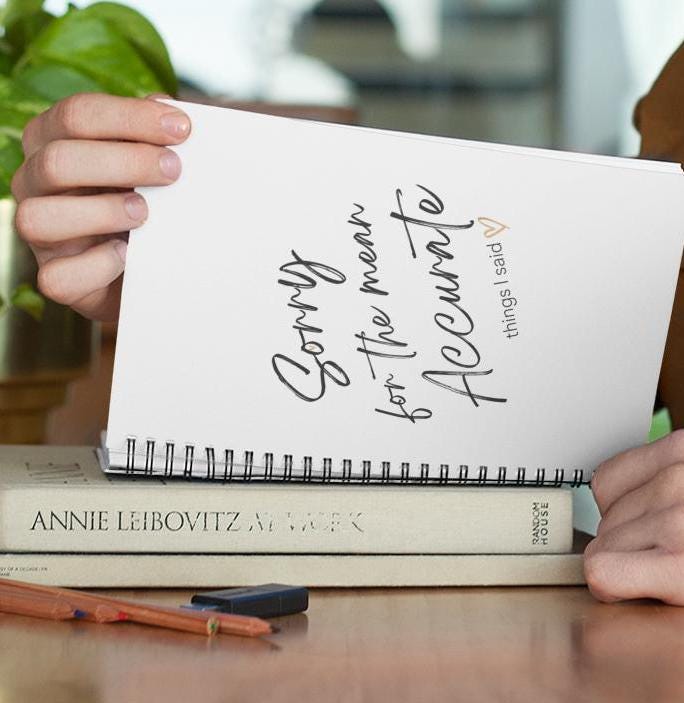 Sorry
for the mean
Accurate
things I said
ANNIE LEIBOVITZ AT WORK
RANDOM
HOUSE